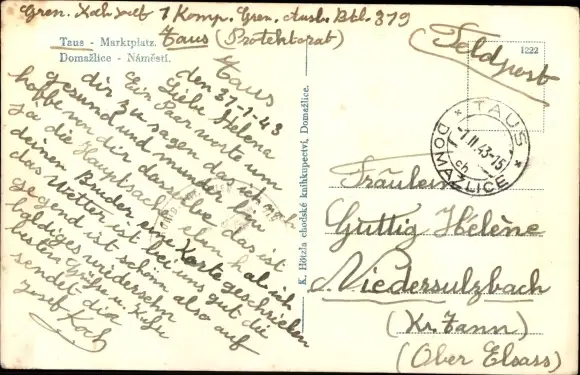 Gren. Koch Josef 1 Komp. Gren. Ausb. Btl. 379
Taus (Protektorat)
Taus - Marktplatz.
Domažlice - Náměstí.
Taus
den 31-1-43
Liebe Helena
Ein Paar worte um
dir zu sagen das ich noch
gesund und munter bin
hoffe von dir dasselbe das ist
ja die Hauptsache eben hab ich
deiner Bruder eine Karte geschrieben
das Wetter ist bei uns gut die
gegend ist schön also auf
baldiges wiedersehn
besten Grüße u. Küße
sendet dir
Josef Koch
K. Hötzla chodské knihkupectví, Domažlice.
Feldpost
1222
* TAUS *
-1.II.43-15
ch
DOMAŽLICE
Fräulein
Guttig Hélène
Niedersulzbach
(Kr. Tann)
(Ober Elsass)